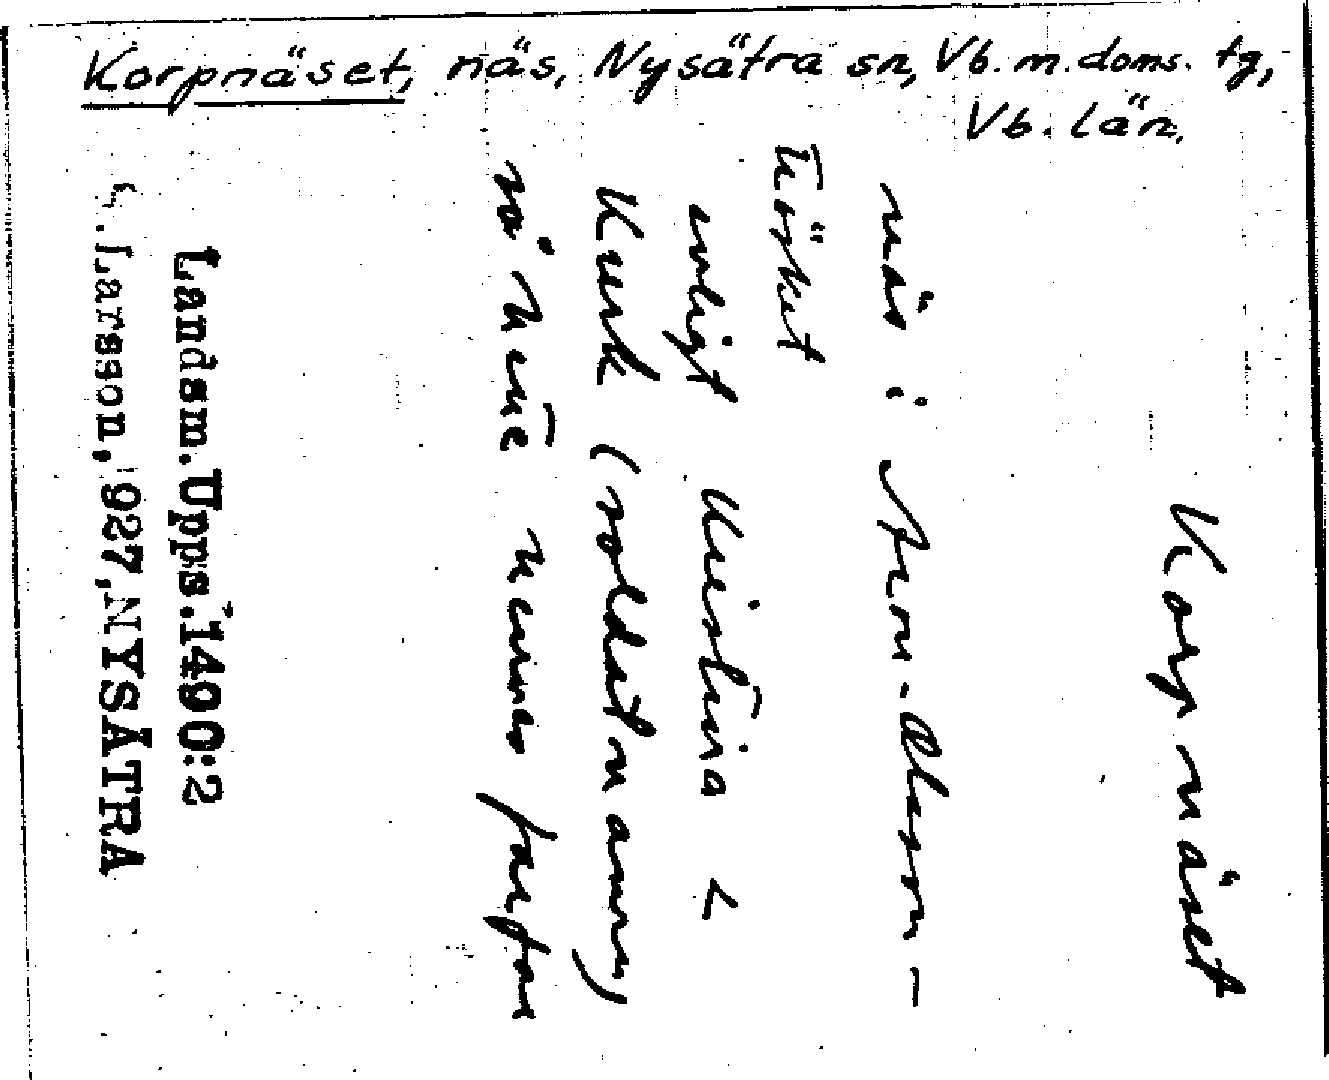 Korpnäset, näs, Nysätra sn, Vb. m. doms. tg,
Vb. län.
Korpnäset
näs i Aron-Olsson-
träsket
enligt Kristina <
Kurk (soldatnamn)
så hette hennes farfar
Landsm. Upps. 1490:2
Larsson, 1927, NYSÄTRA